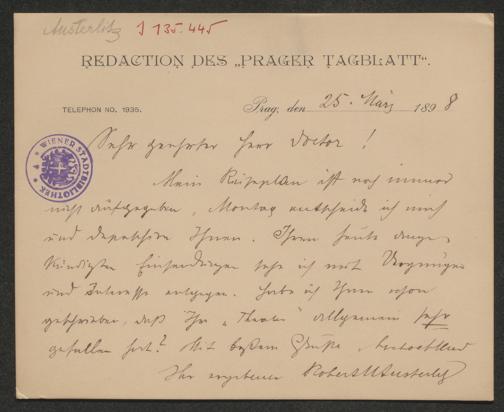 Austerlitz J 135.445
REDACTION DES „PRAGER TAGBLATT“.
TELEPHON NO. 1935.
Prag, den 25. März 1898
WIENER STADTBIBLIOTHEK
Sehr geehrter Herr Doctor!
Mein Reiseplan ist noch immer
nicht aufgegeben, Montag entscheide ich mich
und depeschire Ihnen. Ihren heute ange-
kündigten Einsendungen sehe ich mit Vergnügen
und Interesse entgegen. Habe ich Ihnen schon
geschrieben, daß Ihr „Theater“ allgemein sehr
gefallen hat? Mit bestem Gruße,
Ihr ergebener Robert Austerlitz